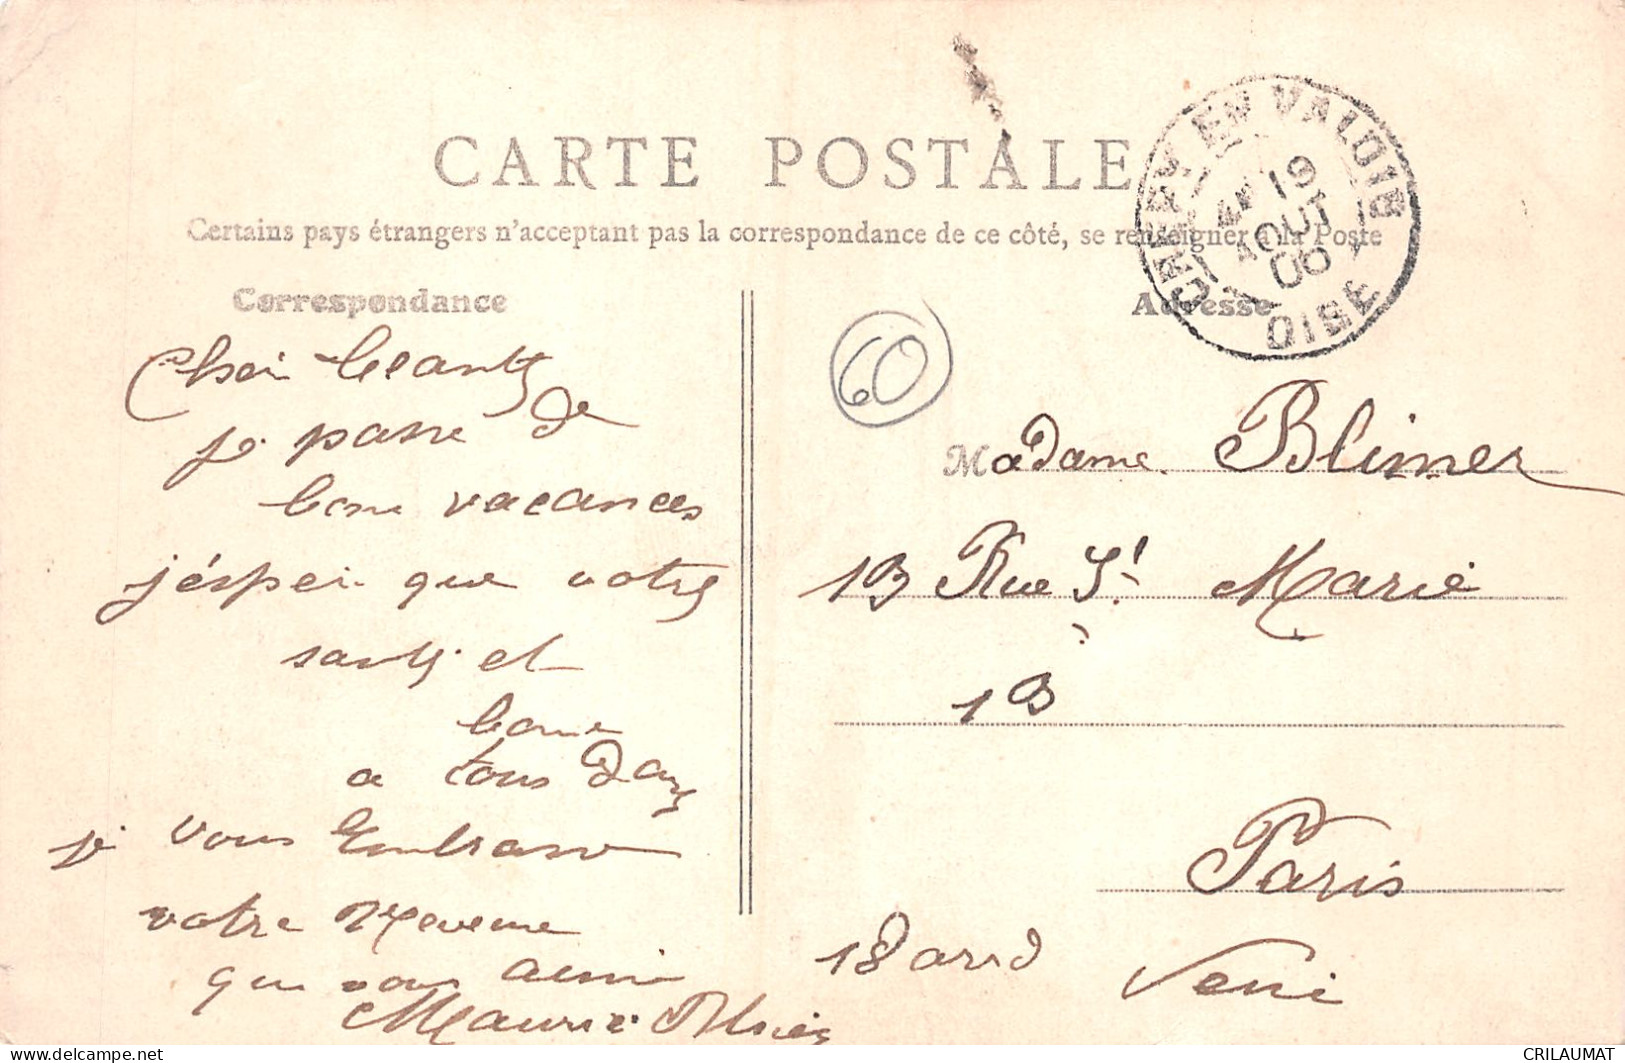 CARTE POSTALE
Certains pays étrangers n'acceptant pas la correspondance de ce côté, se renseigner à la Poste
CRÉPY EN VALOIS
19
AOUT
06
OISE
Correspondance
Adresse
60
je passe de
bone vacances
j'éspei que votre
santé et
bone
a tous
je vous Embrasse
votre Neveue
qui vous aime
Maurice
Madame Blimer
13 Rue St Marie
13
Paris
18 arr d
delcampe.net
CRILAUMAT